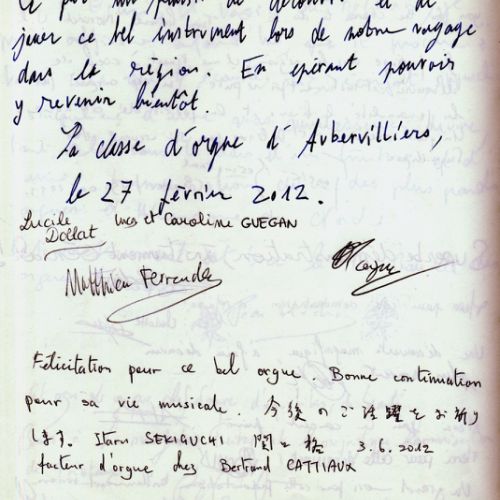 jouer ce bel instrument lors de notre voyage
dans la région. En espérant pouvoir
y revenir bientôt.
La classe d'orgue d'Aubervilliers,
le 27 février 2012.
Lucile Dollat Ines et Caroline GUEGAN
Matthieu Ferrandez
Félicitation pour ce bel orgue. Bonne continuation
pour sa vie musicale. 今後のご活躍をお祈り
します。 Itaru SEKIGUCHI 関口格 3.6.2012
facteur d'orgue chez Bertrand CATTIAUX